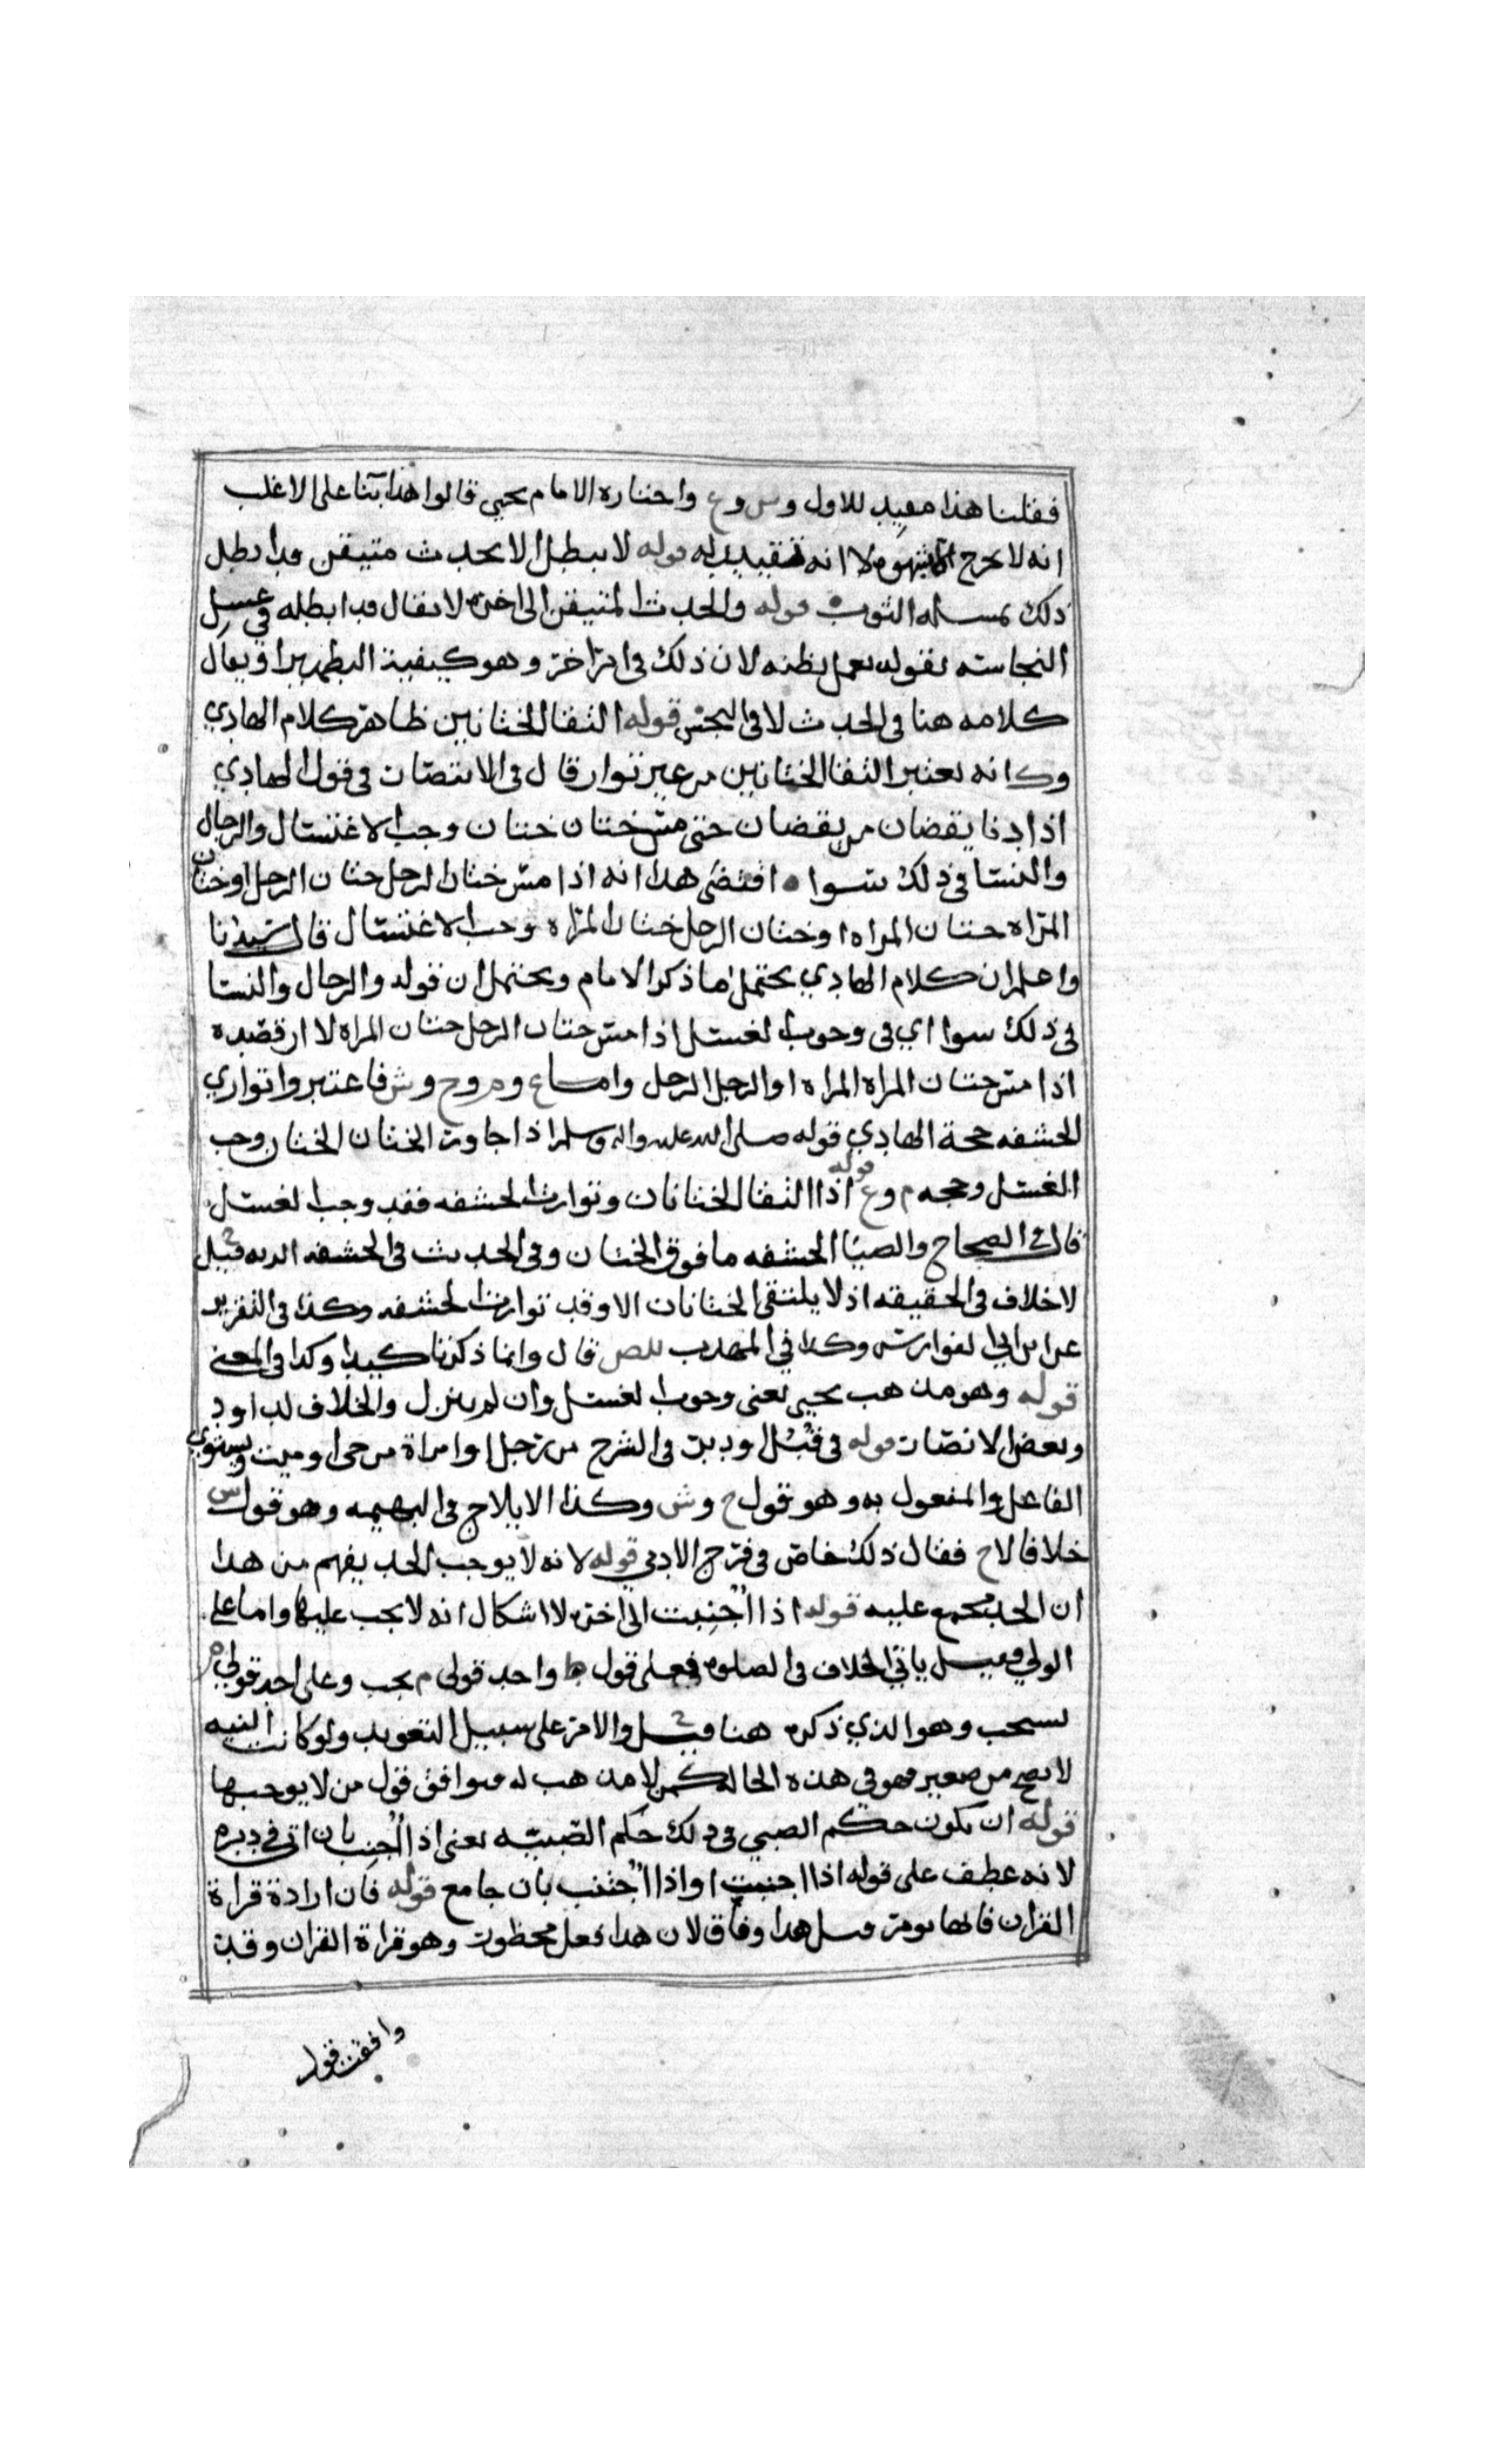 فقلنا هذا مقيد للاول وس وع واختاره الامام يحيى قالوا هذا بنا على الاغلب
انه لا يخرج الا بشهوه لا انه تقييد له قوله لا يبطل الا بحدث متيقن قد ابطل
ذلك بمساله الثوب قوله والحدث المتيقن الى اخره لا يقال قد ابطله في غسل
النجاسه بقوله يعمل بظنه لان ذلك في امر اخر وهو كيفية التطهير او يقال
كلامه هنا في الحدث لا في النجس قوله التقا الختانين ظاهر كلام الهادي
وكانه يعتبر التقا الختانين من غير توار قال في الانتصار في قول الهادي
اذا ادنا يقضان من يقضان حتى مس ختان ختان وجب الاغتسال والرجال
والنسا في ذلك سوا اقتضى هذا انه اذا مس ختان الرجل ختان الرجل او ختان
المراه ختان المراه او ختان الرجل ختان المراه وجب الاغتسال قال سيدنا
واعلم ان كلام الهادي يحتمل ما ذكر الامام ويحتمل ان قوله والرجال والنسا
في ذلك سوا اي في وجوب الغسل اذا مس ختان الرجل ختان المراه لا ان قصده
اذا مس ختان المراه المراه او الرجل الرجل واما ع وم وح وش فاعتبروا تواري
الحشفه حجة الهادي قوله صلى الله عليه واله وسلم اذا جاوز الختان الختان وجب
الغسل وحجه م وع قوله اذا التقا الختانان وتوارت الحشفه فقد وجب الغسل
قال في الصحاح والضيا الحشفه ما فوق الختان وفي الحديث في الحشفه الديه قيل
لا خلاف في الحقيقه اذ لا يلتقي الختانان الا وقد توارت الحشفه وكذا في التقرير
عن ابن ابي الفوارس وكذا في المهذب للص قال وانما ذكرنا كيدا وكذا في المغني
قوله وهو مذهب يحيى يعني وجوب الغسل وان لم ينزل والخلاف لداود
وبعض الانصار قوله في قبل او دبر في الشرح من رجل او امراة من حي او ميت ويستوي
الفاعل والمفعول به وهو قول ح وش وكذا الايلاج في البهيمه وهو قول س
خلافا لاح فقال ذلك خاص في فرج الادمي قوله لانه لا يوجب الحد يفهم من هذا
ان الحد مجمع عليه قوله اذا اُجنبت الى اخره لا اشكال انه لا يجب عليها واما على
الولي فقيل ياتي الخلاف في الصلوه فعلى قول ط واحد قولي م يجب وعلى احد قولي م
يستحب وهو الذي ذكره هنا قيل والامر على سبيل التعويد ولو كانت النيه
لا تصح من صغير فهو في هذه الحاله كمن لا مذهب له فوافق قول من لا يوجبها
قوله ان يكون حكم الصبي في ذلك حكم الصبيه يعني اذا اُجنب بان اتي في دبره
لانه عطف على قوله اذا اجنبت او اذا اُجنب بان جامع قوله فان ارادة قراة
القران فانها تومر قيل هذا وفاق لان هذا فعل محظور وهو قراة القران وقد
وافقت قول